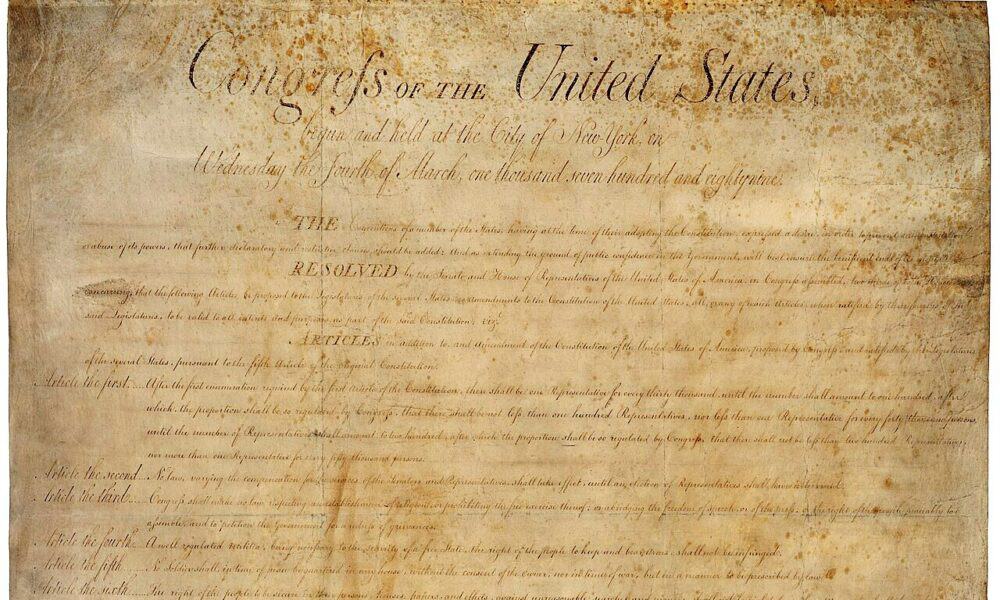 Congreſs OF THE United States,
begun and held at the City of New-York, on
Wednesday the fourth of March, one thousand seven hundred and eighty nine.
THE Conventions of a number of the States, having at the time of their adopting the Constitution, expressed a desire, in order to prevent
or abuse of its powers, that further declaratory and restrictive clauses should be added: And as extending the ground of public confidence in the Government, will best ensure the beneficent ends of its
RESOLVED by the Senate and House of Representatives of the United States of America, in Congress assembled, two thirds of both Houses
concurring, that the following Articles be proposed to the Legislatures of the several States, as amendments to the Constitution of the United States, all, or any of which Articles, when ratified by three fourths of the
said Legislatures, to be valid to all intents and purposes, as part of the said Constitution; viz.
ARTICLES in addition to, and Amendment of the Constitution of the United States of America, proposed by Congress, and ratified by the Legislatures
of the several States, pursuant to the fifth Article of the original Constitution.
Article the first.... After the first enumeration required by the first Article of the Constitution, there shall be one Representative for every thirty thousand, until the number shall amount to one hundred, after
which, the proportion shall be so regulated by Congress, that there shall be not leſs than one hundred Representatives, nor leſs than one Representative for every forty thousand persons,
until the number of Representatives shall amount to two hundred, after which the proportion shall be so regulated by Congress, that there shall not be leſs than two hundred Representatives,
nor more than one Representative for every fifty thousand persons.
Article the second... No law, varying the compensation for the services of the Senators and Representatives, shall take effect, until an election of Representatives shall have intervened.
Article the third..... Congreſs shall make no law respecting an establishment of religion, or prohibiting the free exercise thereof; or abridging the freedom of speech, or of the press; or the right of the people peaceably to
assemble, and to petition the Government for a redress of grievances.
Article the fourth.. A well regulated militia, being necessary to the security of a free State, the right of the people to keep and bear arms, shall not be infringed.
Article the fifth..... No Soldier shall, in time of peace be quartered in any house, without the consent of the owner, nor in time of war, but in a manner to be prescribed by law.
Article the sixth..... The right of the people to be secure in their persons, houses, papers, and effects, against unreasonable searches and seizures, shall not be